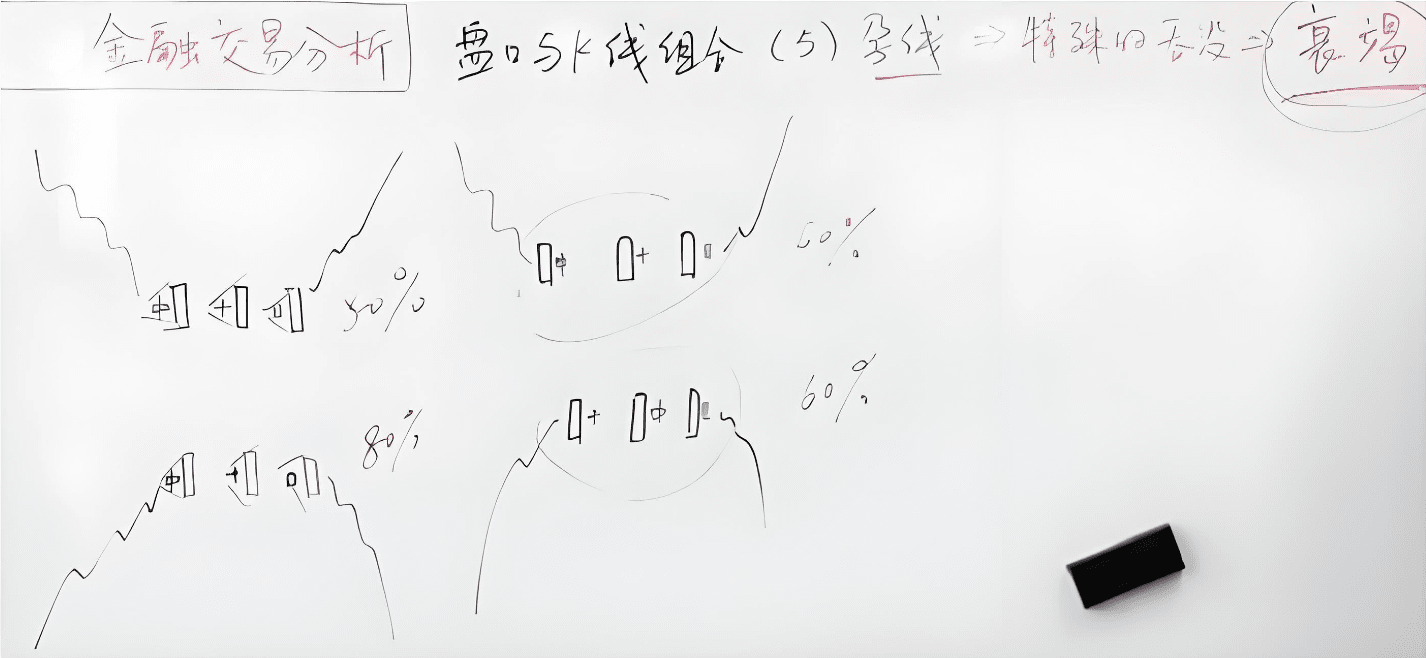 金融交易分析 盘口与K线组合（5）孕线⇒特殊的吞没⇒衰竭
50%
80%
60%